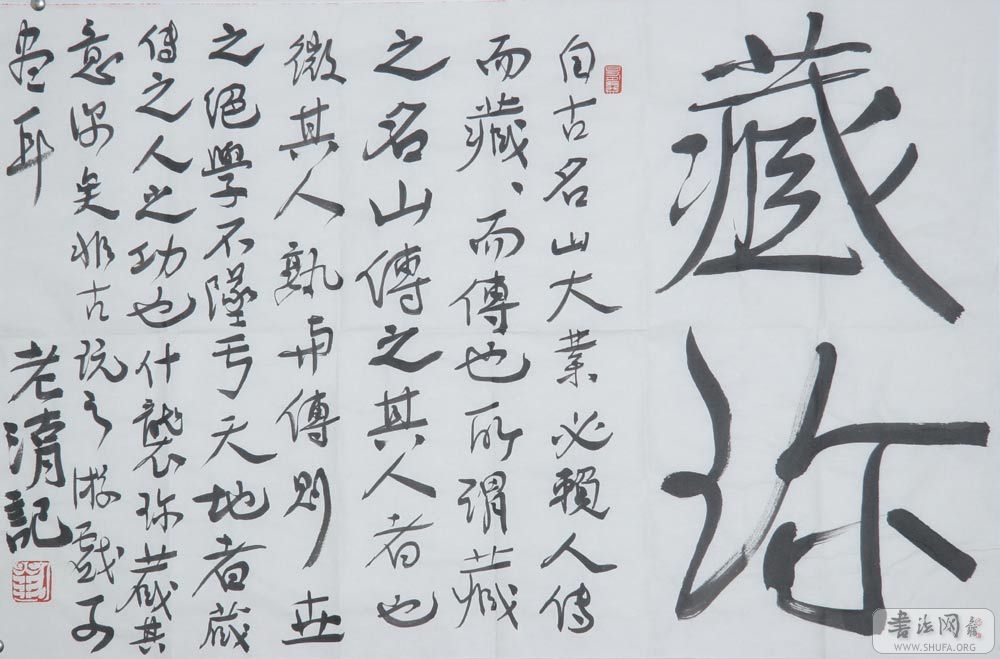 藏珎
自古名山大業必賴人傳
而藏、而傳也所謂藏
之名山傳之其人者也
微其人孰与傳則世
之絕學不墜亏天地者藏
傳之人之功也什襲珎藏其
意深矣非古玩之游戲可
盡耳
老清記
书法网
WWW.SHUFA.ORG